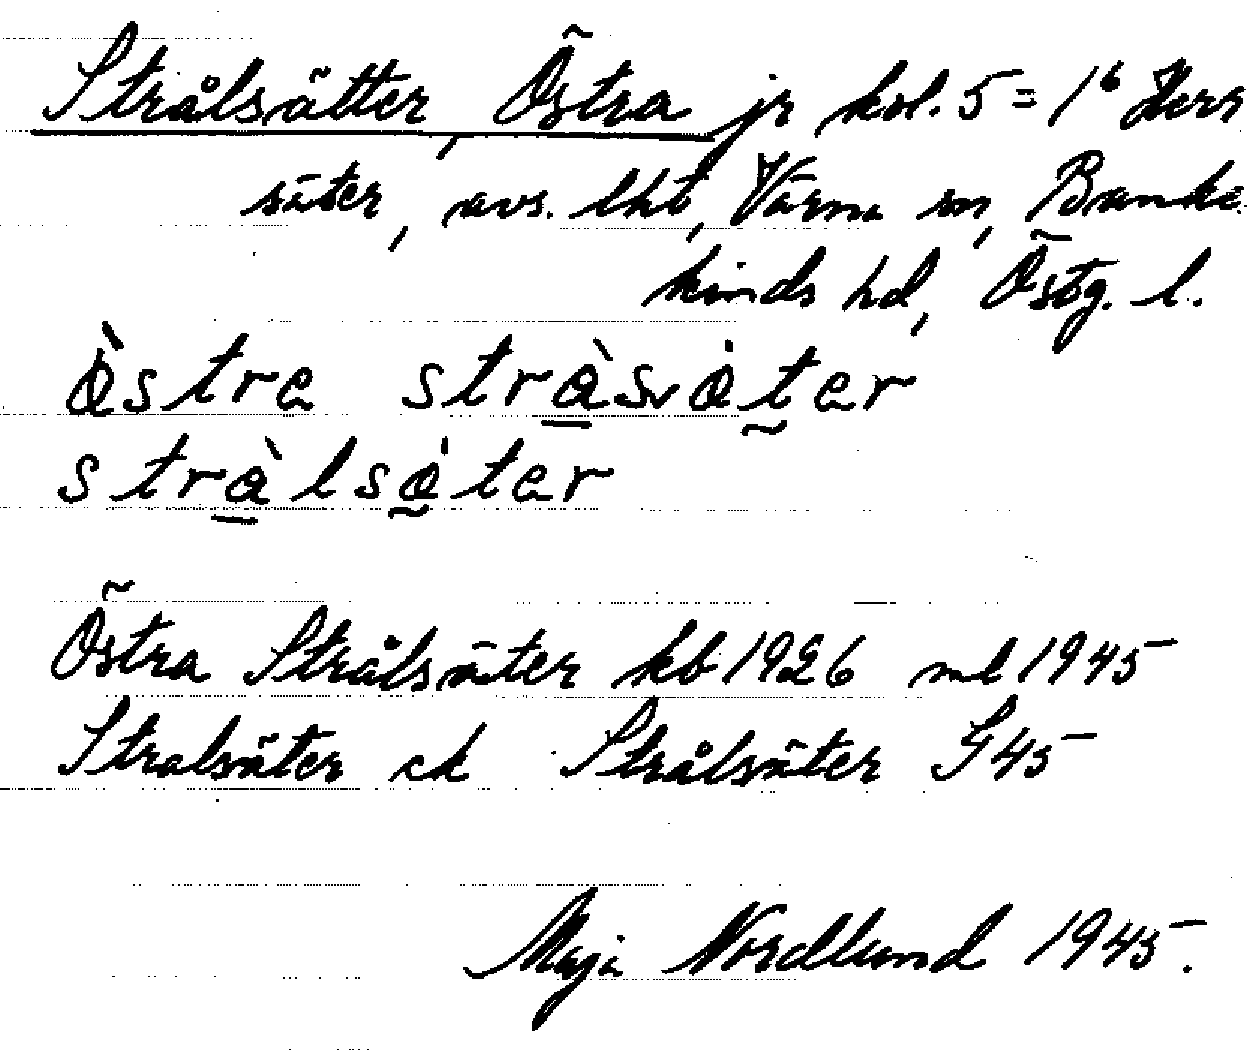 Strålsätter, Östra jr kol. 5 = 1⁶ Herr
säter, avs. lht, Värna sn, Banke
kinds hd, Östg. l.
Östra Strålsäter kb 1926 ml 1945
Stralsäter ck Strålsäter G45
Maja Nordlund 1945.